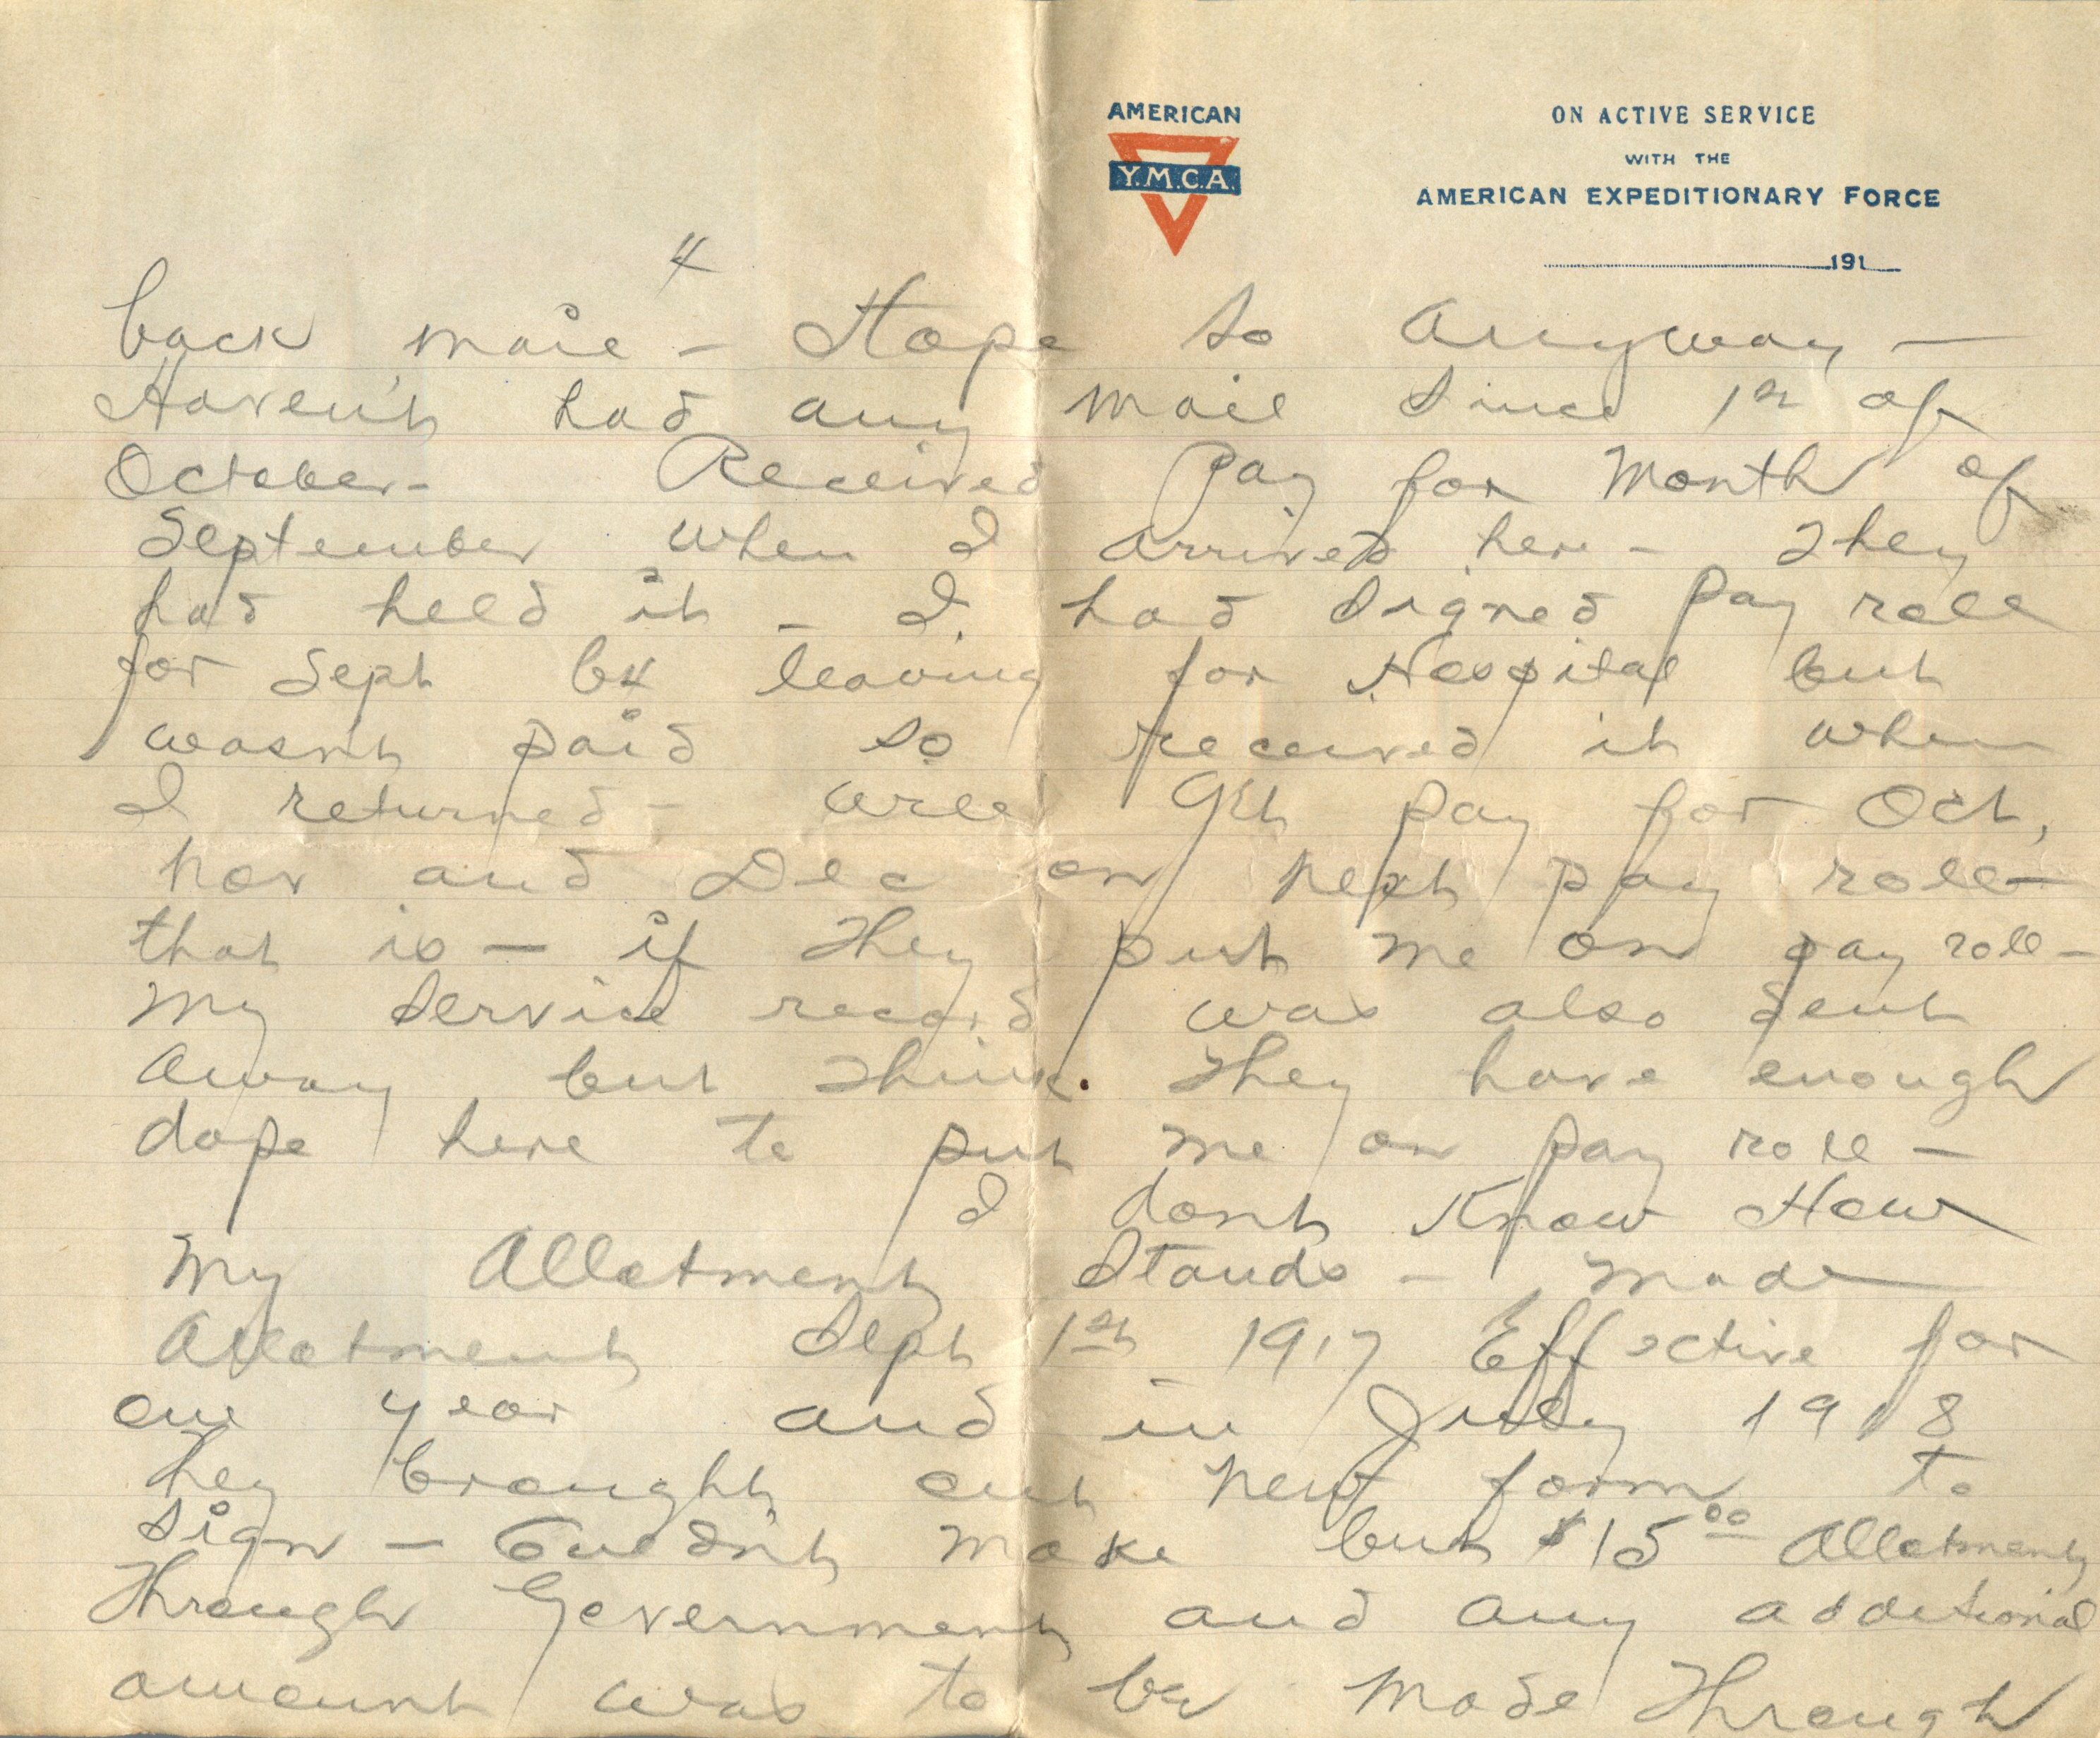 AMERICAN
Y.M.C.A.
ON ACTIVE SERVICE
WITH THE
AMERICAN EXPEDITIONARY FORCE
191
4
back mail - Hope so anyway -
Haven't had any mail since 1st of
October- Received Pay for Month of
September when I arrived here - They
had held it - I had signed pay roll
for Sept b4 leaving for Hospital but
wasnt paid so received it when
I returned - will get pay for Oct,
nov and Dec on next pay roll -
that is - if they put me on pay roll -
My service record was also sent
away but think they have enough
dope here to put me on pay roll -
I dont Know How
My Allotment Stands - made
Allotment Sept 1st 1917 Effective for
one year and in July 1918
they brought out new form to
sign - Couldnt make but $15 00 Allotment
Through Government and any additional
amount was to be made Through